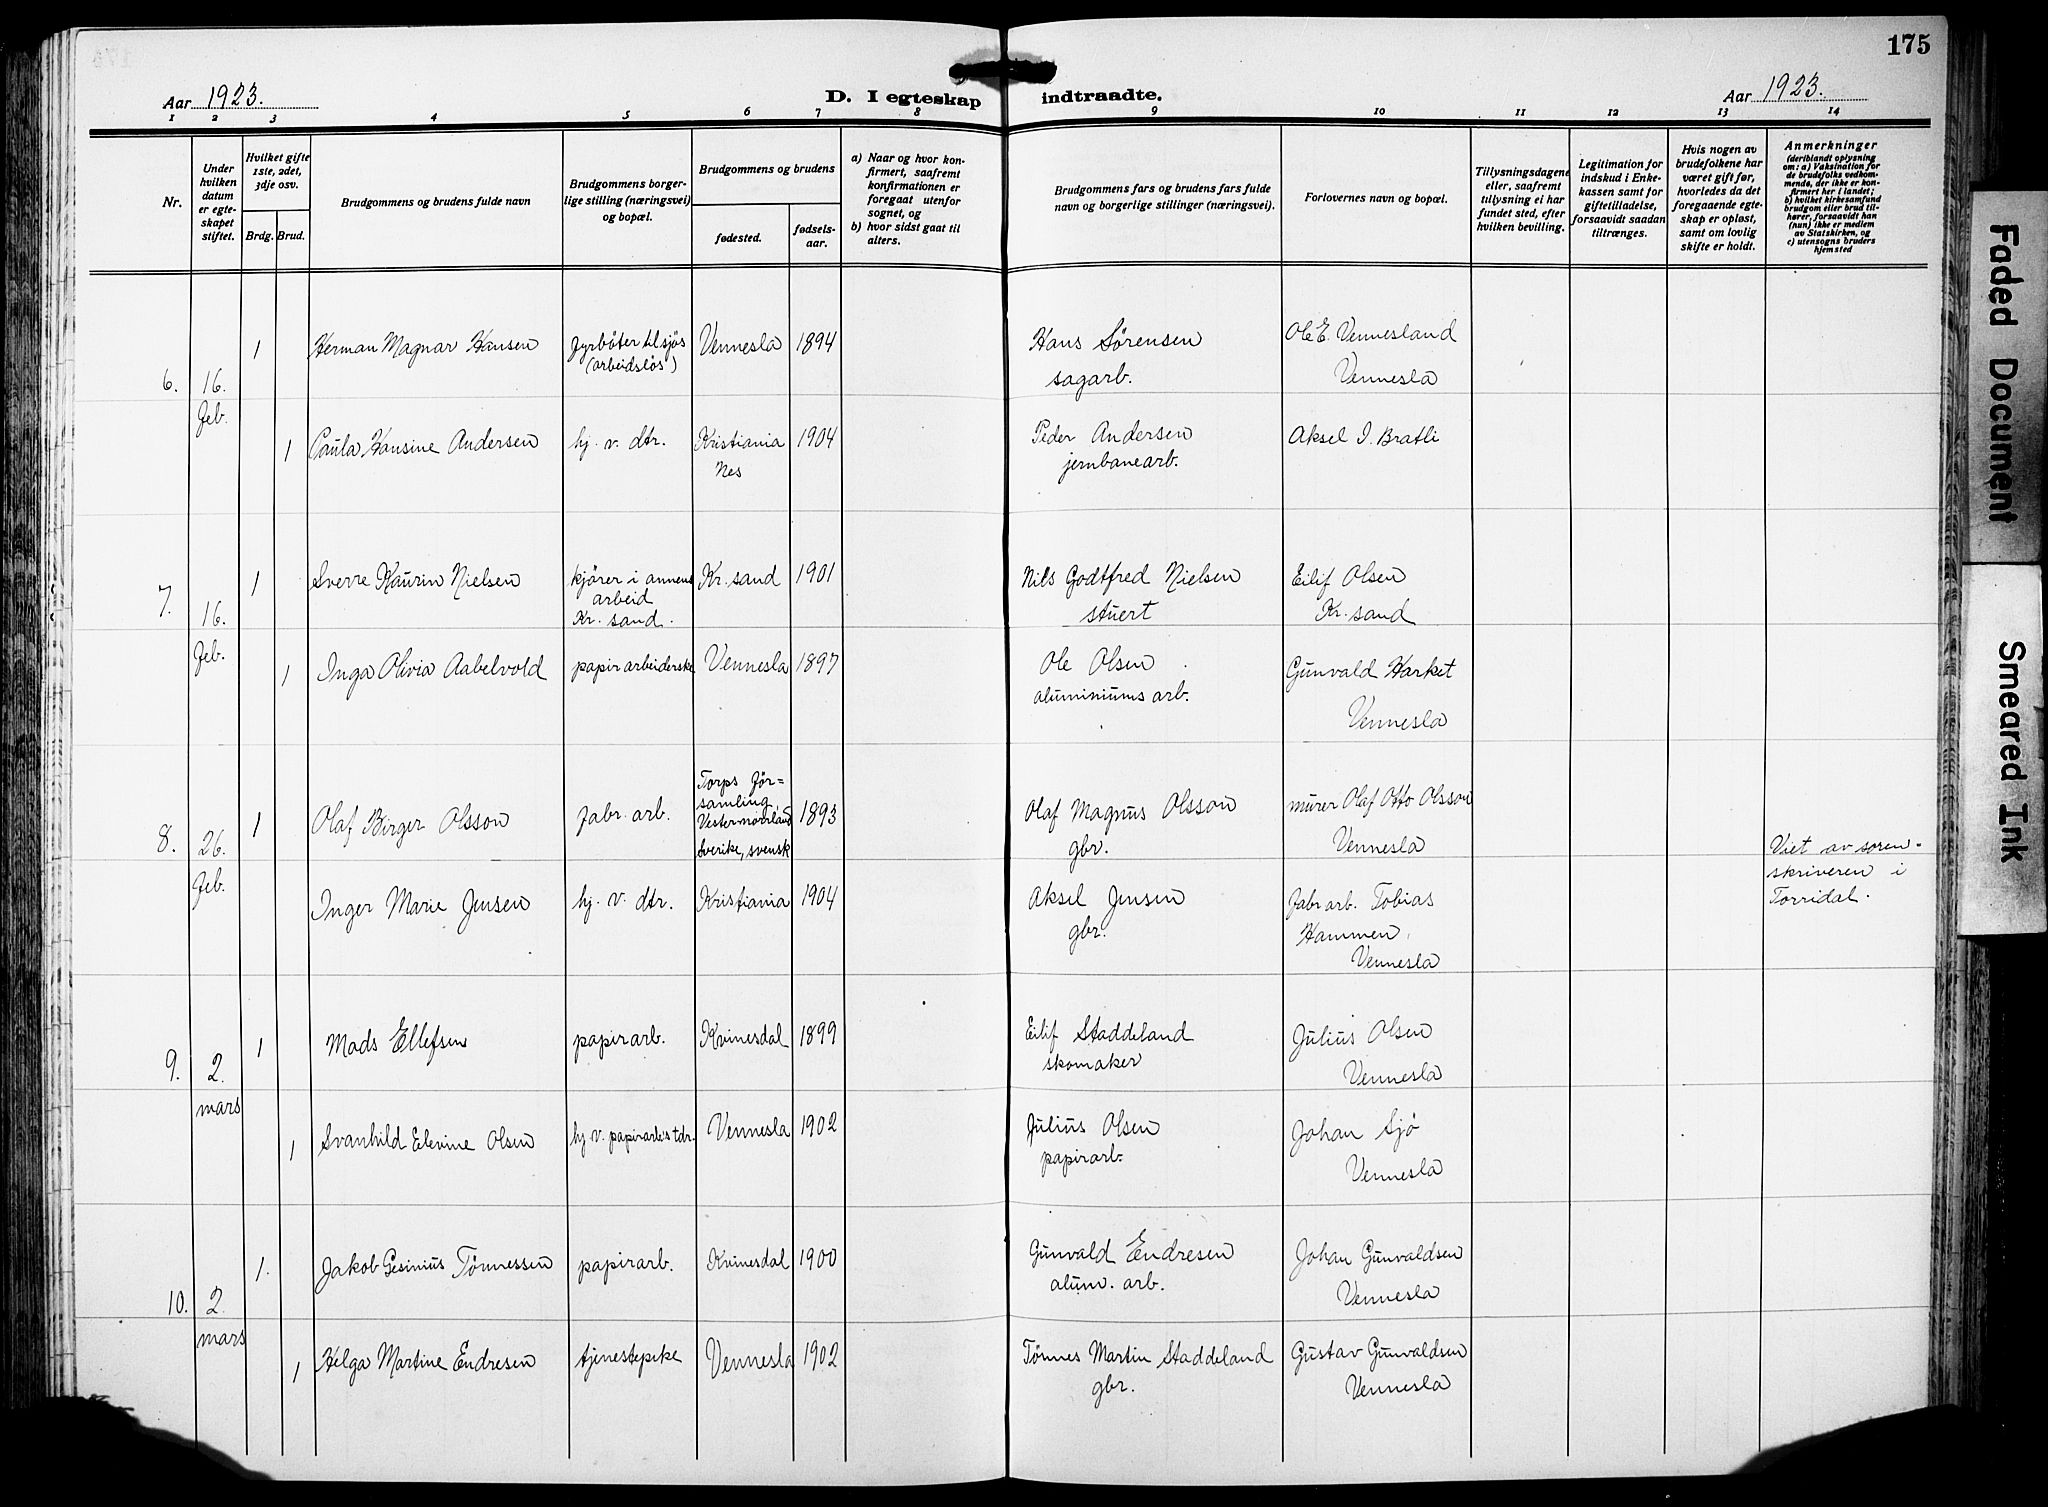 175
Aar 1923.
D. I egteskap indtraadte.
Aar 1923.
1 2 3 4 5 6 7 8 9 10 11 12 13 14
Nr.
Under
hvilken
datum
er egte-
skapet
stiftet.
Hvilket gifte
1ste, 2det,
3dje osv.
Brdg. Brud.
Brudgommens og brudens fulde navn
Brudgommens borger-
lige stilling (næringsvei)
og bopæl.
Brudgommens og brudens
fødested.
fødsels-
aar.
a) Naar og hvor kon-
firmert, saafremt
konfirmationen er
foregaat utenfor
sognet, og
b) hvor sidst gaat til
alters.
Brudgommens fars og brudens fars fulde
navn og borgerlige stillinger (næringsvei).
Forlovernes navn og bopæl.
Tillysningsdagene
eller, saafremt
tillysning ei har
fundet sted, efter
hvilken bevilling.
Legitimation for
indskud i Enke-
kassen samt for
giftetilladelse,
forsaavidt saadan
tiltrænges.
Hvis nogen av
brudefolkene har
været gift før,
hvorledes da det
foregaaende egte-
skap er opløst,
samt om lovlig
skifte er holdt.
Anmerkninger
(deriblandt oplysning
om: a) Vaksination for
de brudefolks vedkom-
mende, der ikke er kon-
firmert her i landet;
b) hvilket kirkesamfund
brudgom eller brud til-
hører, forsaavidt han
(hun) ikke er medlem
av Statskirken, og
c) utensogns bruders
hjemsted
6.
16.
Feb.
1
Herman Magnar Hansen
fyrbøter tilsjøs
(arbeidsløs)
Vennesla
1894
Hans Sørensen
sagarb.
Ole E. Vennesland
Vennesla
1
Paula Hansine Andersen
hj. v. dtr.
Kristiania
Nes
1904
Peder Andersen
jernbanearb.
Aksel I. Bratli
7.
16.
Feb.
1
Sverre Kaurin Nielsen
kjører i annens
arbeid
Kr. sand.
Kr. sand
1901
Nils Godtfred Nielsen
stuert
Eilif Olsen
Kr. sand
1
Inga Olivia Aabelvold
papirarbeiderske
Vennesla
1897
Ole Olsen
aluminiums arb.
Gunvald Harket
Vennesla
8.
26.
Feb.
1
Olaf Birger Olsson
fabr. arb.
Torps För=
samling
Vesternorrland
Sverike, svensk
1893
Olaf Magnus Olsson
gbr.
murer Olaf Otto Olsson
Vennesla
Viet av soren-
skriveren i
Torridal.
Inger Marie Jensen
hj. v. dtr.
Kristiania
1904
Aksel Jensen
gbr.
Fabr arb. Tobias
Hammen,
Vennesla
9.
2.
mars
1
Mads Ellefsen
papirarb.
Kvinesdal
1899
Eilif Staddeland
skomaker
Julius Olsen
Vennesla
1
Svanhild Elevine Olsen
hj. v. papirarb's tdr.
Vennesla
1902
Julius Olsen
papirarb.
Johan Sjø
Vennesla
10.
2.
mars
1.
Jakob Gesinius Tønnessen
papirarb.
Kvinesdal
1900
Gunvald Endresen
alum. arb.
Johan Gunvaldsen
Vennesla
1
Helga Martine Endresen
tjenestepike
Vennesla
1902
Tønnes Martin Staddeland
gbr.
Gustav Gunvaldsen
Vennesla
Faded Document
Smeared Ink